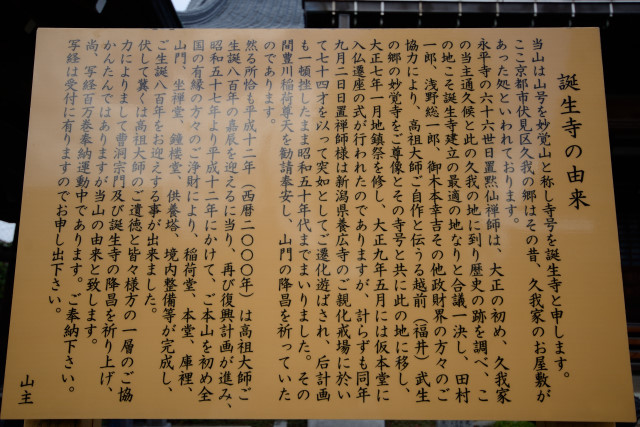 誕生寺の由来
当山は山号を妙覚山と称し寺号を誕生寺と申します。
ここ京都市伏見区久我の郷はその昔、久我家のお屋敷が
あった処といわれております。
永平寺の六十六世日置黙仙禅師は、大正の初め、久我家
の当主通久候と此の久我の地に到り歴史の跡を調べ、こ
の地こそ誕生寺建立の最適の地なりと合議一決し、田村
一郎、浅野総一郎、御木本幸吉その他政財界の方々のご
協力により、高祖大師ご自作と伝うる越前（福井）武生
の郷の妙覚寺をご尊像とその寺号と共に此の地に移し、
大正七年一月地鎮祭を修し、大正九年五月には仮本堂に
入仏遷座の式が行われたのでありますが、計らずも同年
九月二日日置禅師様は新潟県養広寺のご親化戒場に於い
て七十四才を以って突如としてご遷化遊ばされ、后計画
も一頓挫したまま昭和五十年代までまいりました。その
間豊川稲荷尊天を勧請奉安し、山門の降昌を祈っていた
のであります。
然る所恰も平成十二年（西暦二〇〇〇年）は高祖大師ご
生誕八百年の嘉辰を迎えるに当り、再び復興計画が進み、
昭和五十七年より平成十二年にかけて、ご本山を初め全
国の有縁の方々のご浄財により、稲荷堂、本堂、庫裡、
山門、坐禅堂、鐘楼堂、供養塔、境内整備等が完成し、
ご生誕八百年をお迎えする事が出来ました。
伏して冀くは高祖大師のご道徳と皆々様方の一層のご協
力によりまして曹洞宗門及び誕生寺の降昌を祈り上げ、
かんたんではありますが当山の由来と致します。
尚、写経百万巻奉納運動中であります。ご奉納下さい。
写経は受付に有りますのでお申し出下さい。
山主